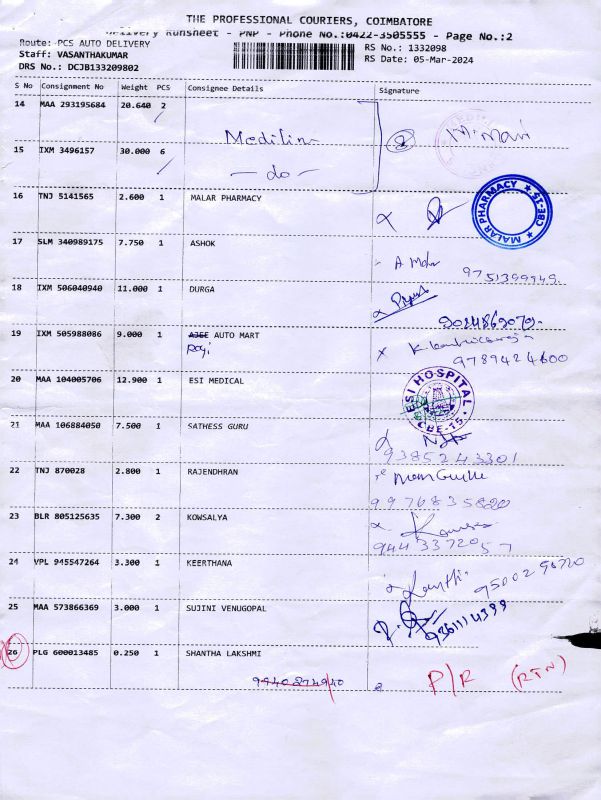 THE PROFESSIONAL COURIERS, COIMBATORE
Delivery Runsheet - PNP - Phone No.:0422-3505555 - Page No.:2
Route: PCS AUTO DELIVERY RS No.: 1332098
Staff: VASANTHAKUMAR RS Date: 05-Mar-2024
DRS No.: DCJB133209802
S No Consignment No Weight PCS Consignee Details Signature
14 MAA 293195684 20.640 2
15 IXM 3496157 30.000 6
- do -
16 TNJ 5141565 2.600 1 MALAR PHARMACY
MALAR PHARMACY ★ CBE ★
17 SLM 340989175 7.750 1 ASHOK
9751399949
18 IXM 506040940 11.000 1 DURGA
19 IXM 505988086 9.000 1 AUTO MART
9789424600
20 MAA 104005706 12.900 1 ESI MEDICAL
ESI HOSPITAL CBE-15
21 MAA 106884050 7.500 1 SATHESS GURU
9385243301
22 TNJ 870028 2.800 1 RAJENDHRAN
9976835820
23 BLR 805125635 7.300 2 KOWSALYA
9443372057
24 VPL 945547264 3.300 1 KEERTHANA
25 MAA 573866369 3.000 1 SUJINI VENUGOPAL
9361114399
26 PLG 600013485 0.250 1 SHANTHA LAKSHMI
P/R (RTN)